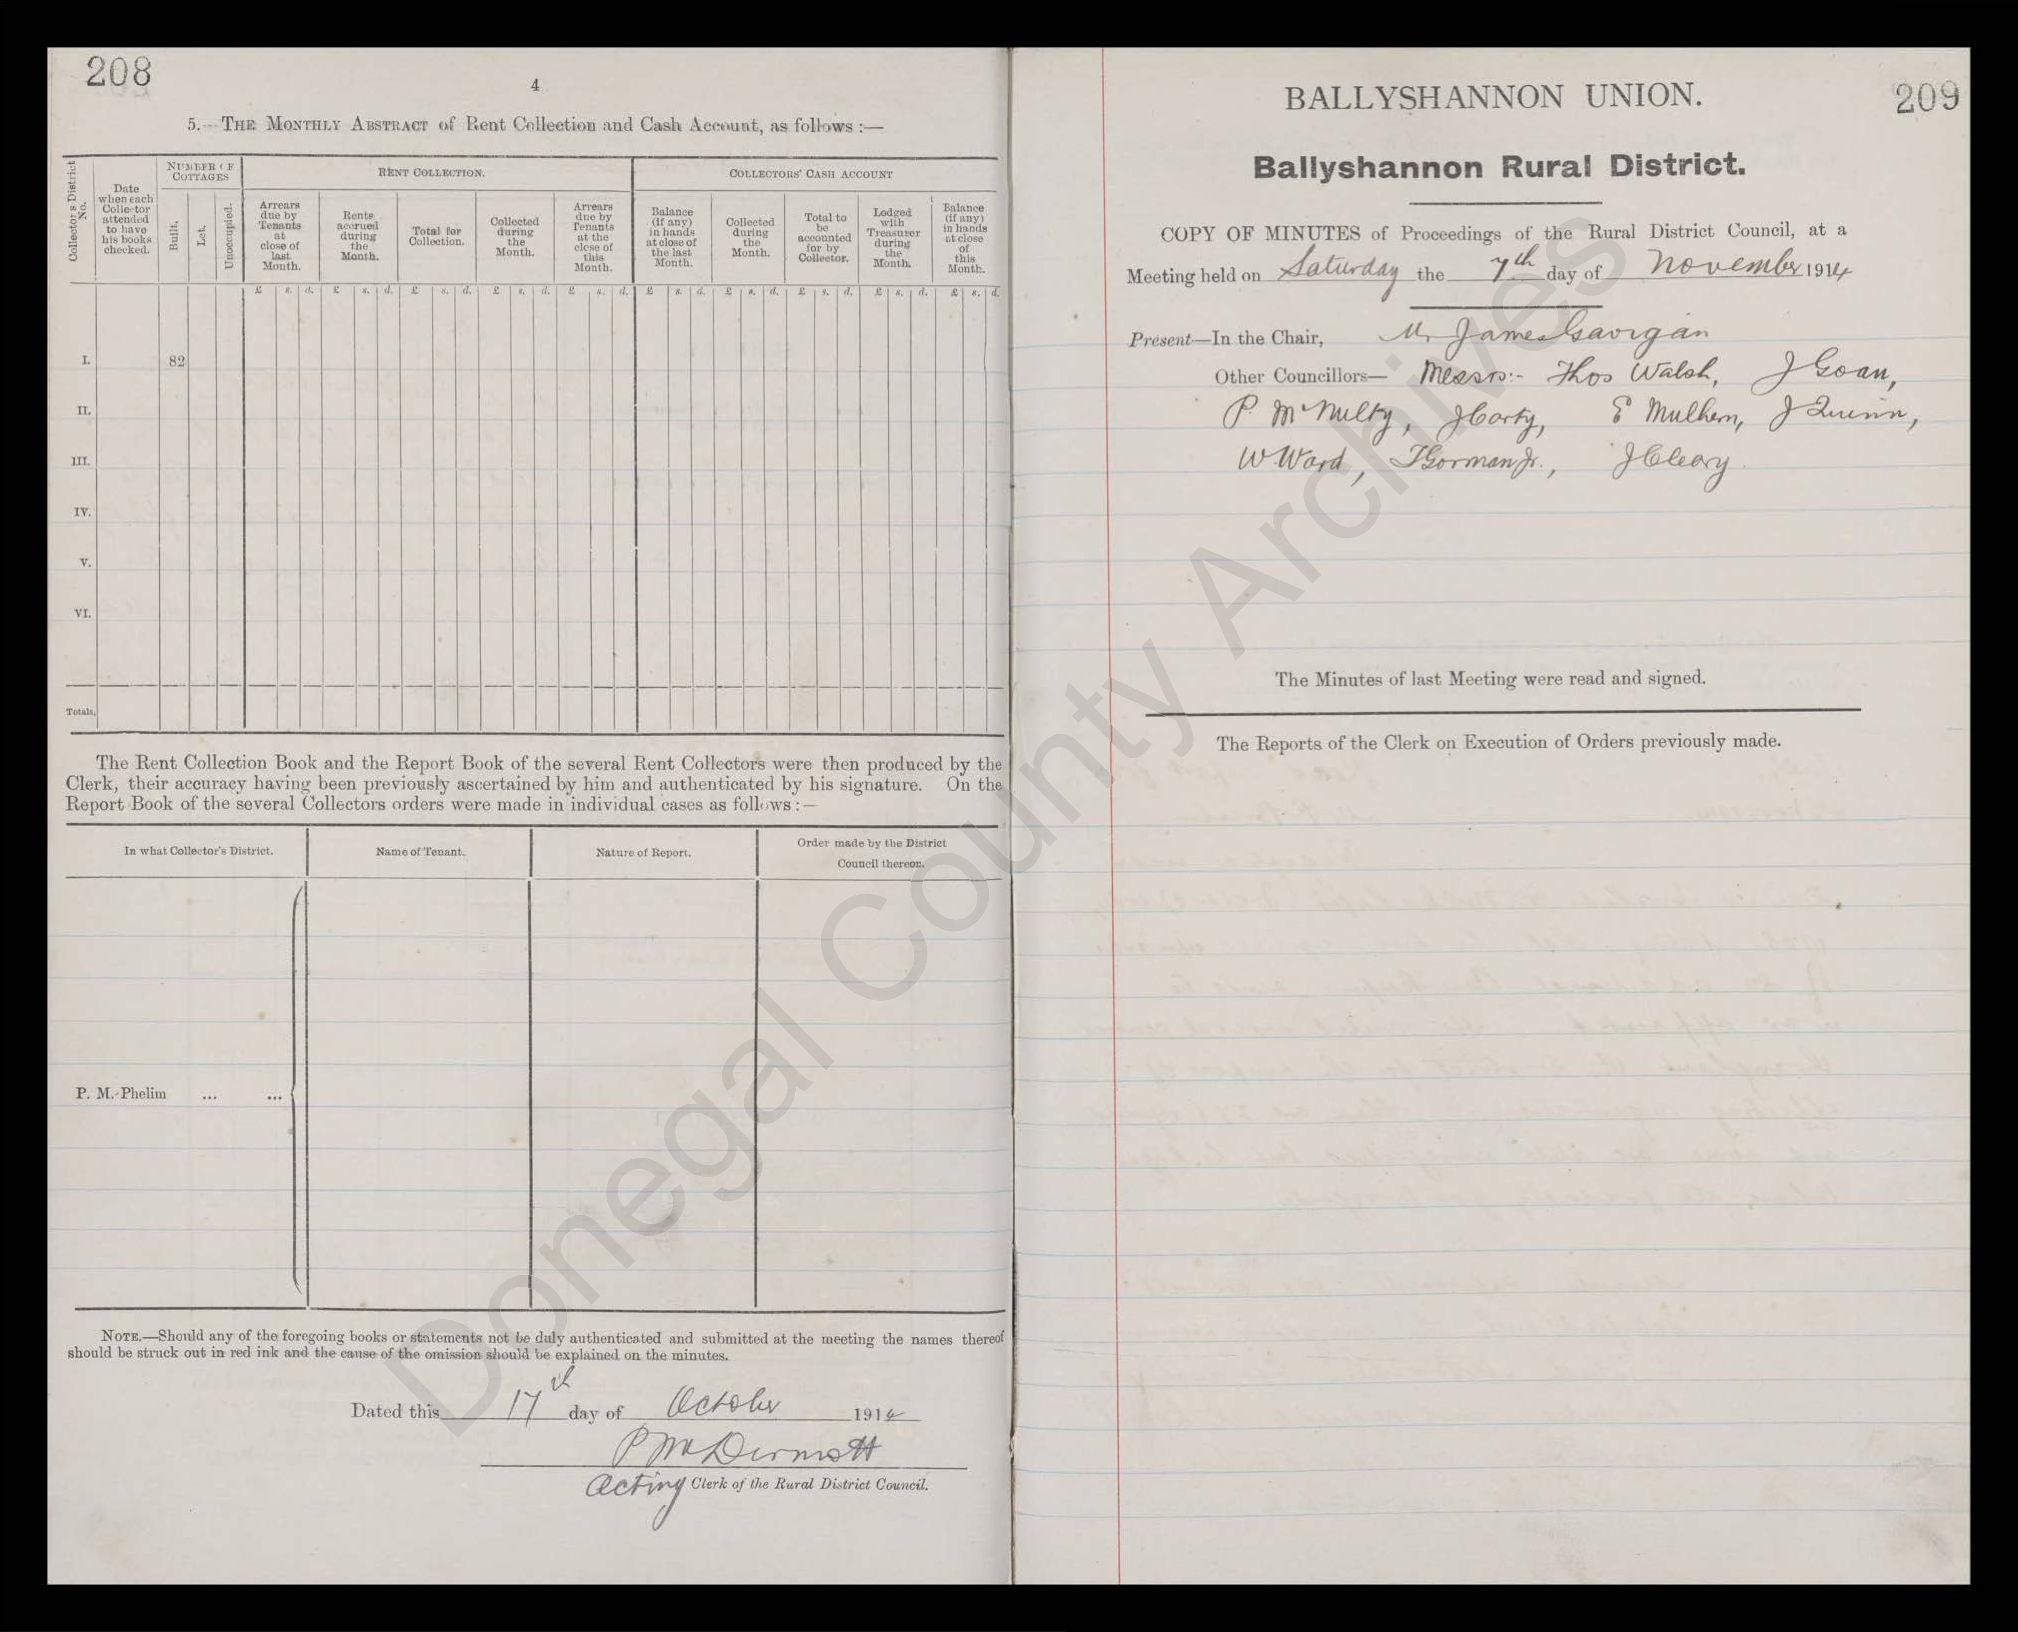 208
4
5.—THE MONTHLY ABSTRACT of Rent Collection and Cash Account, as follows :—
Collector's District No.
Date when each Collector attended to have his books checked.
NUMBER OF COTTAGES
Built.
Let.
Unoccupied.
RENT COLLECTION.
Arrears due by Tenants at close of last Month.
Rents accrued during the Month.
Total for Collection.
Collected during the Month.
Arrears due by Tenants at the close of this Month.
COLLECTORS' CASH ACCOUNT
Balance (if any) in hands at close of the last Month.
Collected during the Month.
Total to be accounted for by Collector.
Lodged with Treasurer during the Month.
Balance (if any) in hands at close of this Month.
£ s. d. £ s. d. £ s. d. £ s. d. £ s. d. £ s. d. £ s. d. £ s. d. £ s. d. £ s. d.
I. 82
II.
III.
IV.
V.
VI.
Totals,
The Rent Collection Book and the Report Book of the several Rent Collectors were then produced by the
Clerk, their accuracy having been previously ascertained by him and authenticated by his signature. On the
Report Book of the several Collectors orders were made in individual cases as follows :—
In what Collector's District. Name of Tenant. Nature of Report. Order made by the District
Council thereon.
P. M.-Phelim ... ...
NOTE.—Should any of the foregoing books or statements not be duly authenticated and submitted at the meeting the names thereof
should be struck out in red ink and the cause of the omission should be explained on the minutes.
Dated this 17th day of October 1914
P McDermott
Acting Clerk of the Rural District Council.
BALLYSHANNON UNION.
209
Ballyshannon Rural District.
COPY OF MINUTES of Proceedings of the Rural District Council, at a
Meeting held on Saturday the 7th day of November 1914
Present—In the Chair, Mr James Gavigan
Other Councillors— Messrs:- Thos Walsh, J Goan,
P. McNulty, J Carty, E Mulhern, J Quinn,
W Ward, T Gorman Jr., J Cleary
The Minutes of last Meeting were read and signed.
The Reports of the Clerk on Execution of Orders previously made.
Donegal County Archives